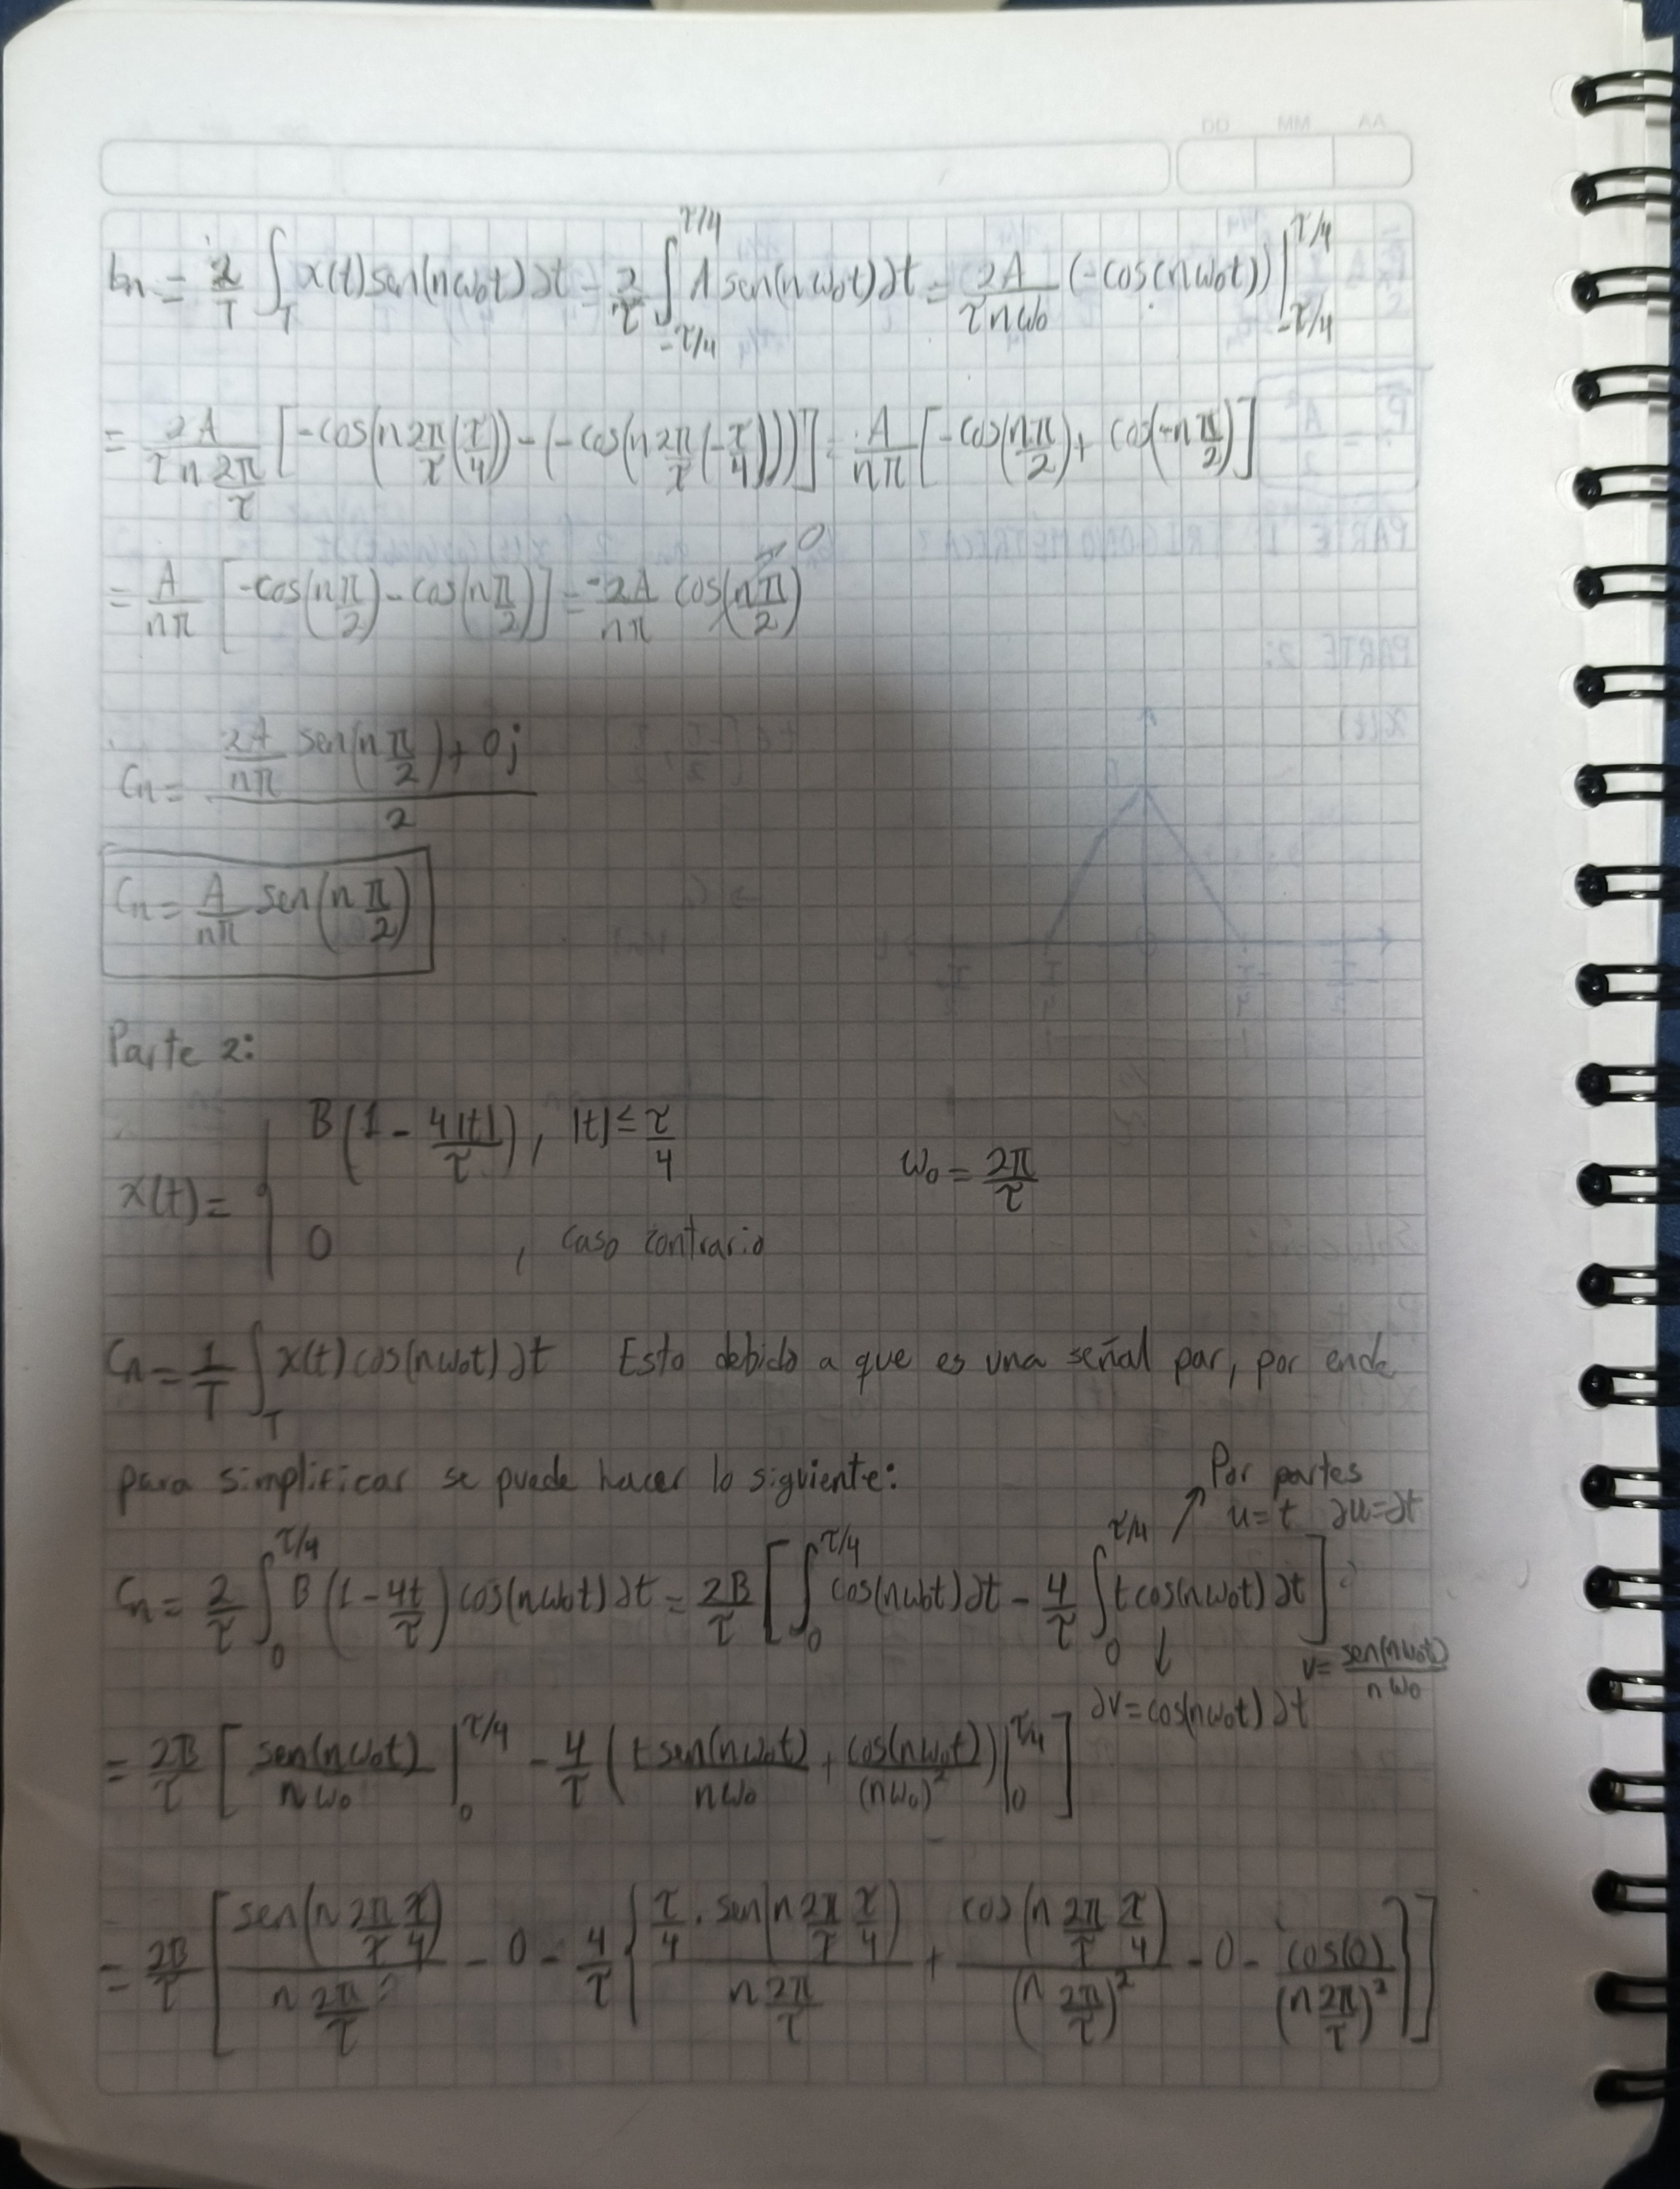 DD MM AA
bn = 2/T ∫_T x(t)sen(nω₀t)∂t = 2/τ ∫_{-τ/4}^{τ/4} A sen(nω₀t)∂t = 2A/(τnω₀) (-cos(nω₀t))|_{-τ/4}^{τ/4}
= 2A/(τ n 2π/τ) [-cos(n 2π/τ (τ/4)) - (-cos(n 2π/τ (-τ/4)))] = A/(nπ) [-cos(n π/2) + cos(-n π/2)]
= A/(nπ) [-cos(n π/2) - cos(n π/2)] = -2A/(nπ) cos(n π/2) → 0
Cn = (2A/(nπ) sen(n π/2) + 0j)/2
Cn = A/(nπ) sen(n π/2)
Parte 2:
x(t) = { B(1 - 4|t|/τ), |t| ≤ τ/4
0 , caso contrario
ω₀ = 2π/τ
Cn = 1/T ∫_T x(t)cos(nω₀t)∂t Esto debido a que es una señal par, por ende
para simplificar se puede hacer lo siguiente:
Por partes
u = t ∂u = ∂t
Cn = 2/τ ∫_0^{τ/4} B(1 - 4t/τ) cos(nω₀t)∂t = 2B/τ [∫_0^{τ/4} cos(nω₀t)∂t - 4/τ ∫_0^{τ/4} t cos(nω₀t)∂t]
v = sen(nω₀t)/(nω₀)
∂v = cos(nω₀t)∂t
= 2B/τ [sen(nω₀t)/(nω₀) |_0^{τ/4} - 4/τ (t sen(nω₀t)/(nω₀) + cos(nω₀t)/(nω₀)²)|_0^{τ/4}]
= 2B/τ [sen(n 2π/τ τ/4)/(n 2π/τ) - 0 - 4/τ {τ/4 · sen(n 2π/τ τ/4)/(n 2π/τ) + cos(n 2π/τ τ/4)/(n 2π/τ)² - 0 - cos(0)/(n 2π/τ)²}]